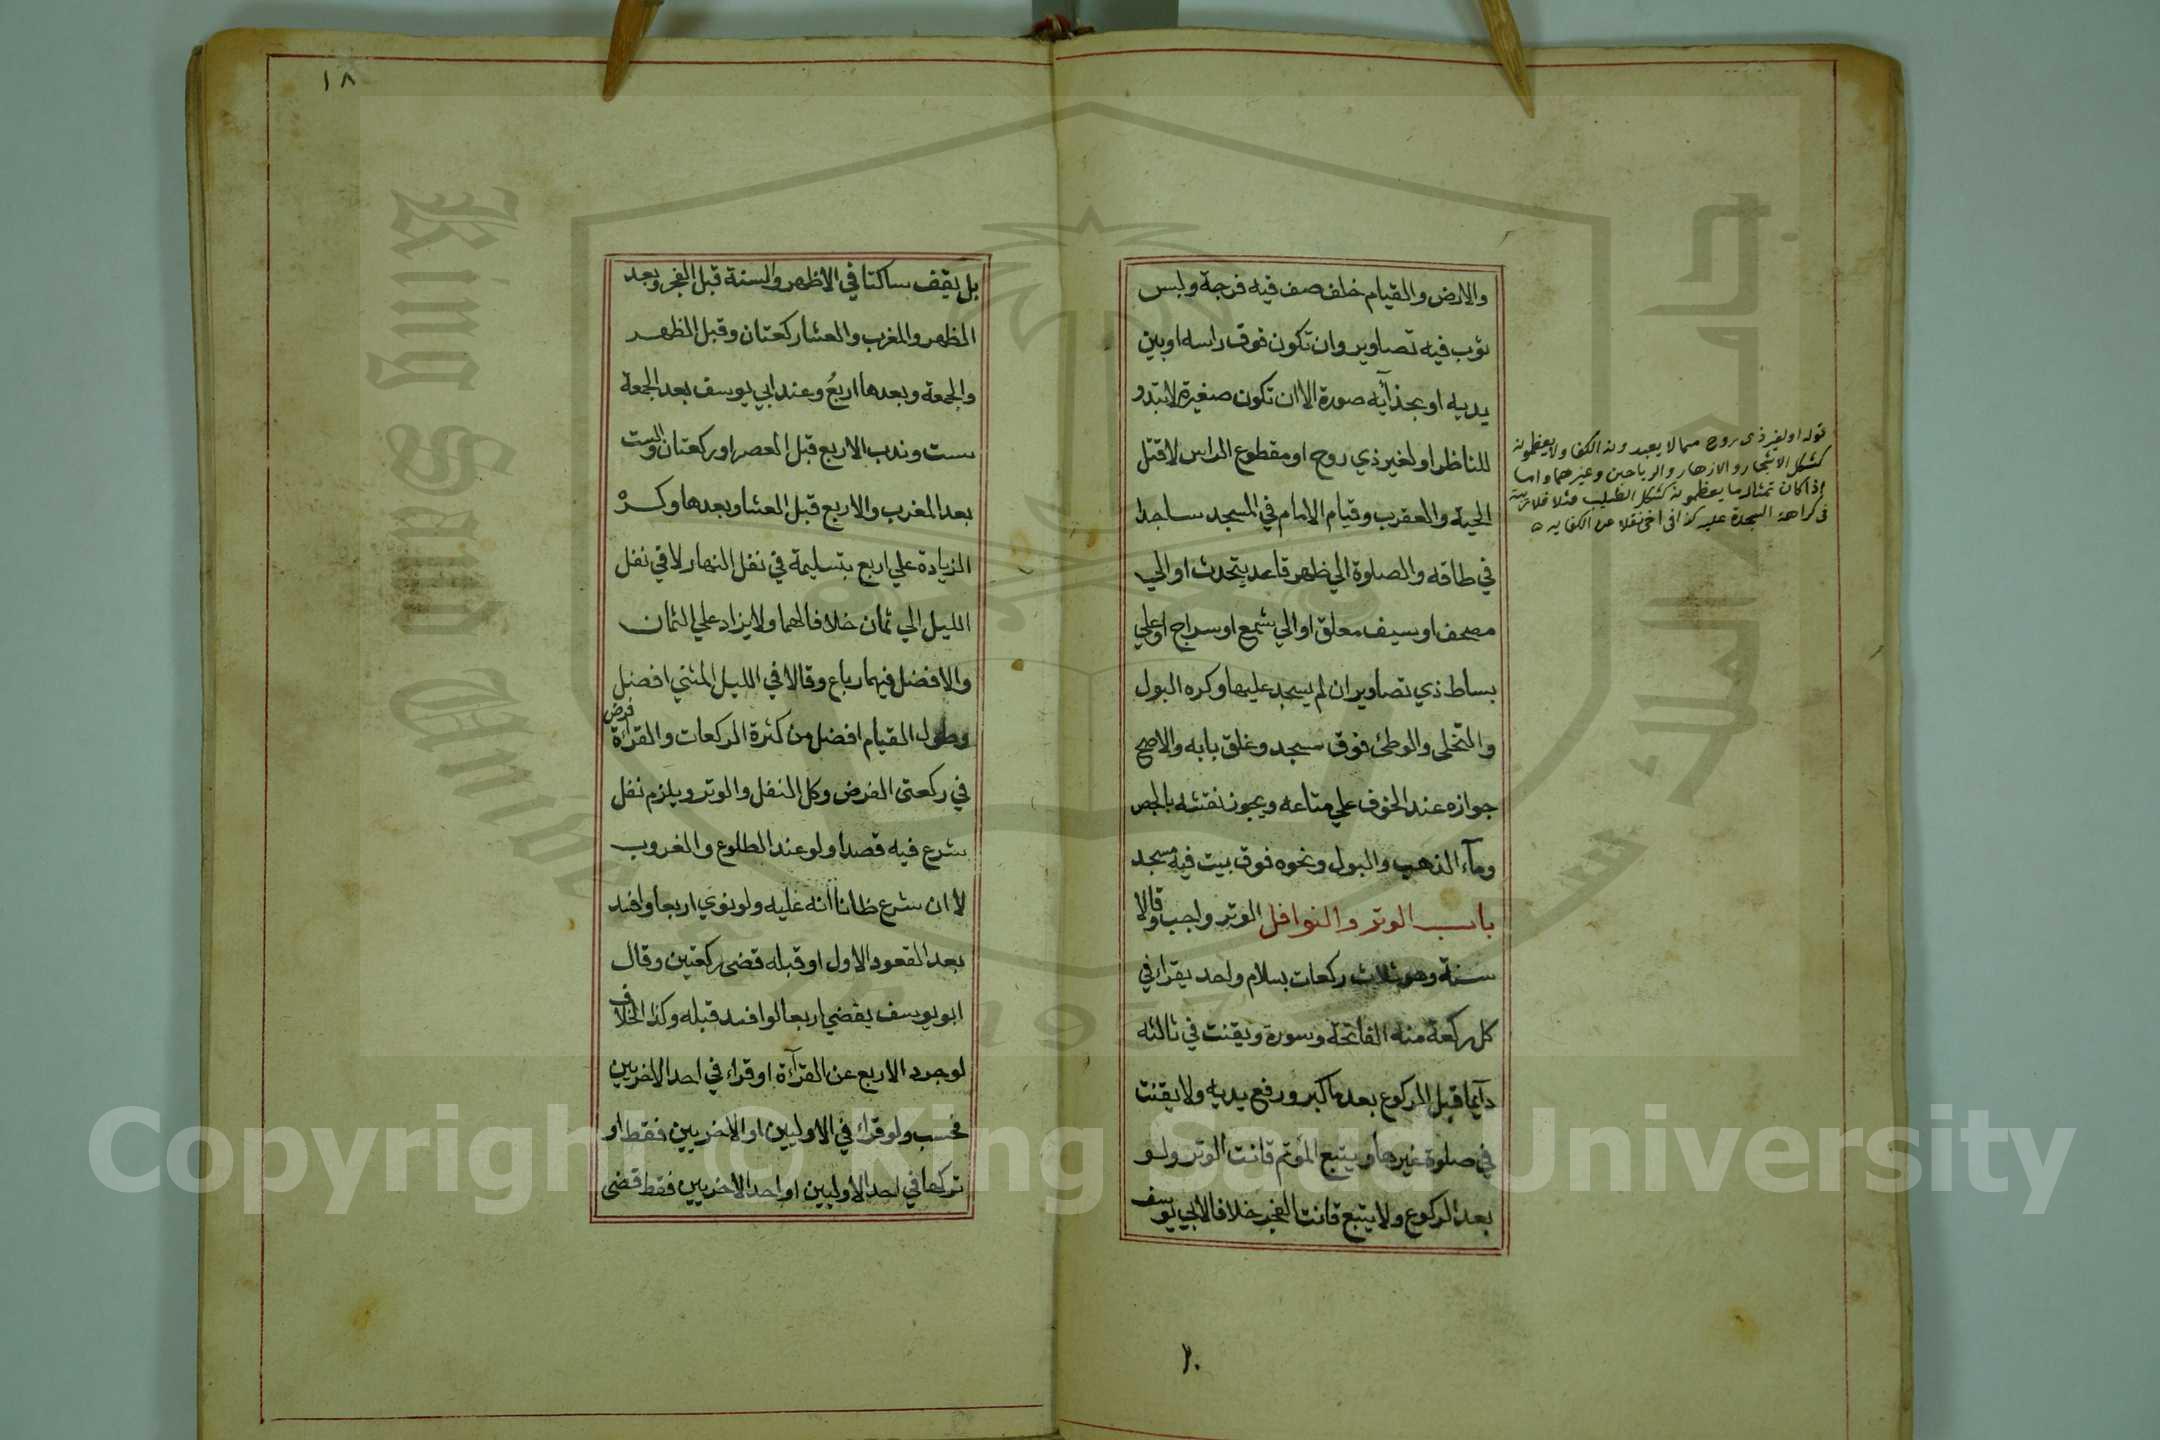 والارض والقيام خلف صف فيه فرجة ولبس
ثوب فيه تصاوير وان تكون فوق راسه او بين
يديه او بحذآيه صورة الا ان تكون صغيرة لا تبدو
للناظر او لغير ذي روح او مقطوع الراس لا قتل
الحية والعقرب وقيام الامام في المسجد ساجدا
في طاقه والصلوة الي ظهر قاعد يتحدث او الي
مصحف او سيف معلق او الي شمع او سراج او علي
بساط ذي تصاوير ان لم يسجد عليها وكره البول
والتخلى والوطئ فوق مسجد وغلق بابه والاصح
جوازه عند الخوف علي متاعه ويجوز نقشه بالجص
ومآء الذهب والبول ونحوه فوق بيت فيه مسجد
باب الوتر والنوافل الوتر واجب وقالا
سنة وهو ثلاث ركعات بسلام واحد يقراء في
كل ركعة منه الفاتحة وسورة ويقنت في ثالثه
دآيما قبل الركوع بعد ما كبر ورفع يديه ولا يقنت
في صلوة غيرها ويتبع المؤتم قانت الوتر ولو
بعد الركوع ولا يتبع قانت الفجر خلافا لابي يوسف
قوله او لغير ذى روح مما لا يعبدونه الكفا ولا يعظمونه
كشكل الاشجار والازهار والرياحين وغيرهما واما
اذا كان تمثال ما يعظمونه كشكل الصليب مثلا فلا
فى كراهة السجدة عليه كذا فى اخى نقلا عن الكفايه
٢٠
١٨
بل يقف ساكتا في الاظهر والسنة قبل الفجر وبعد
الظهر والمغرب والعشا ركعتان وقبل الظهر
والجمعة وبعدها اربعُ وعند ابي يوسف بعد الجمعة
ست وندب الاربع قبل العصر او ركعتان والست
بعد المغرب والاربع قبل العشا وبعدها وكره
الزيادة علي اربع بتسليمة في نفل النهار لا في نفل
الليل الي ثمان خلافا لهما ولا يزاد علي الثمان
والافضل فيهما رباع وقالا في الليل المثني افضل
وطول القيام افضل من كثرة الركعات والقرآة فرض
في ركعتى الفرض وكل النفل والوتر ويلزم نفل
شرع فيه قصدا ولو عند الطلوع والغروب
لا ان شرع ظانا انه عليه ولو نوي اربعا وافسد
بعد القعود الاول او قبله قضى ركعتين وقال
ابو يوسف يقضي اربعا لو افسد قبله وكذا الخلاف
لو جرد الاربع عن القرآة او قراء في احد الاخريين
فحسب ولو قراء في الاوليين او الاخريين فقط او
تركها في احد الاوليين او احد الاخريين فقط قضى
Copyright © King Saud University
King Saud University
1957